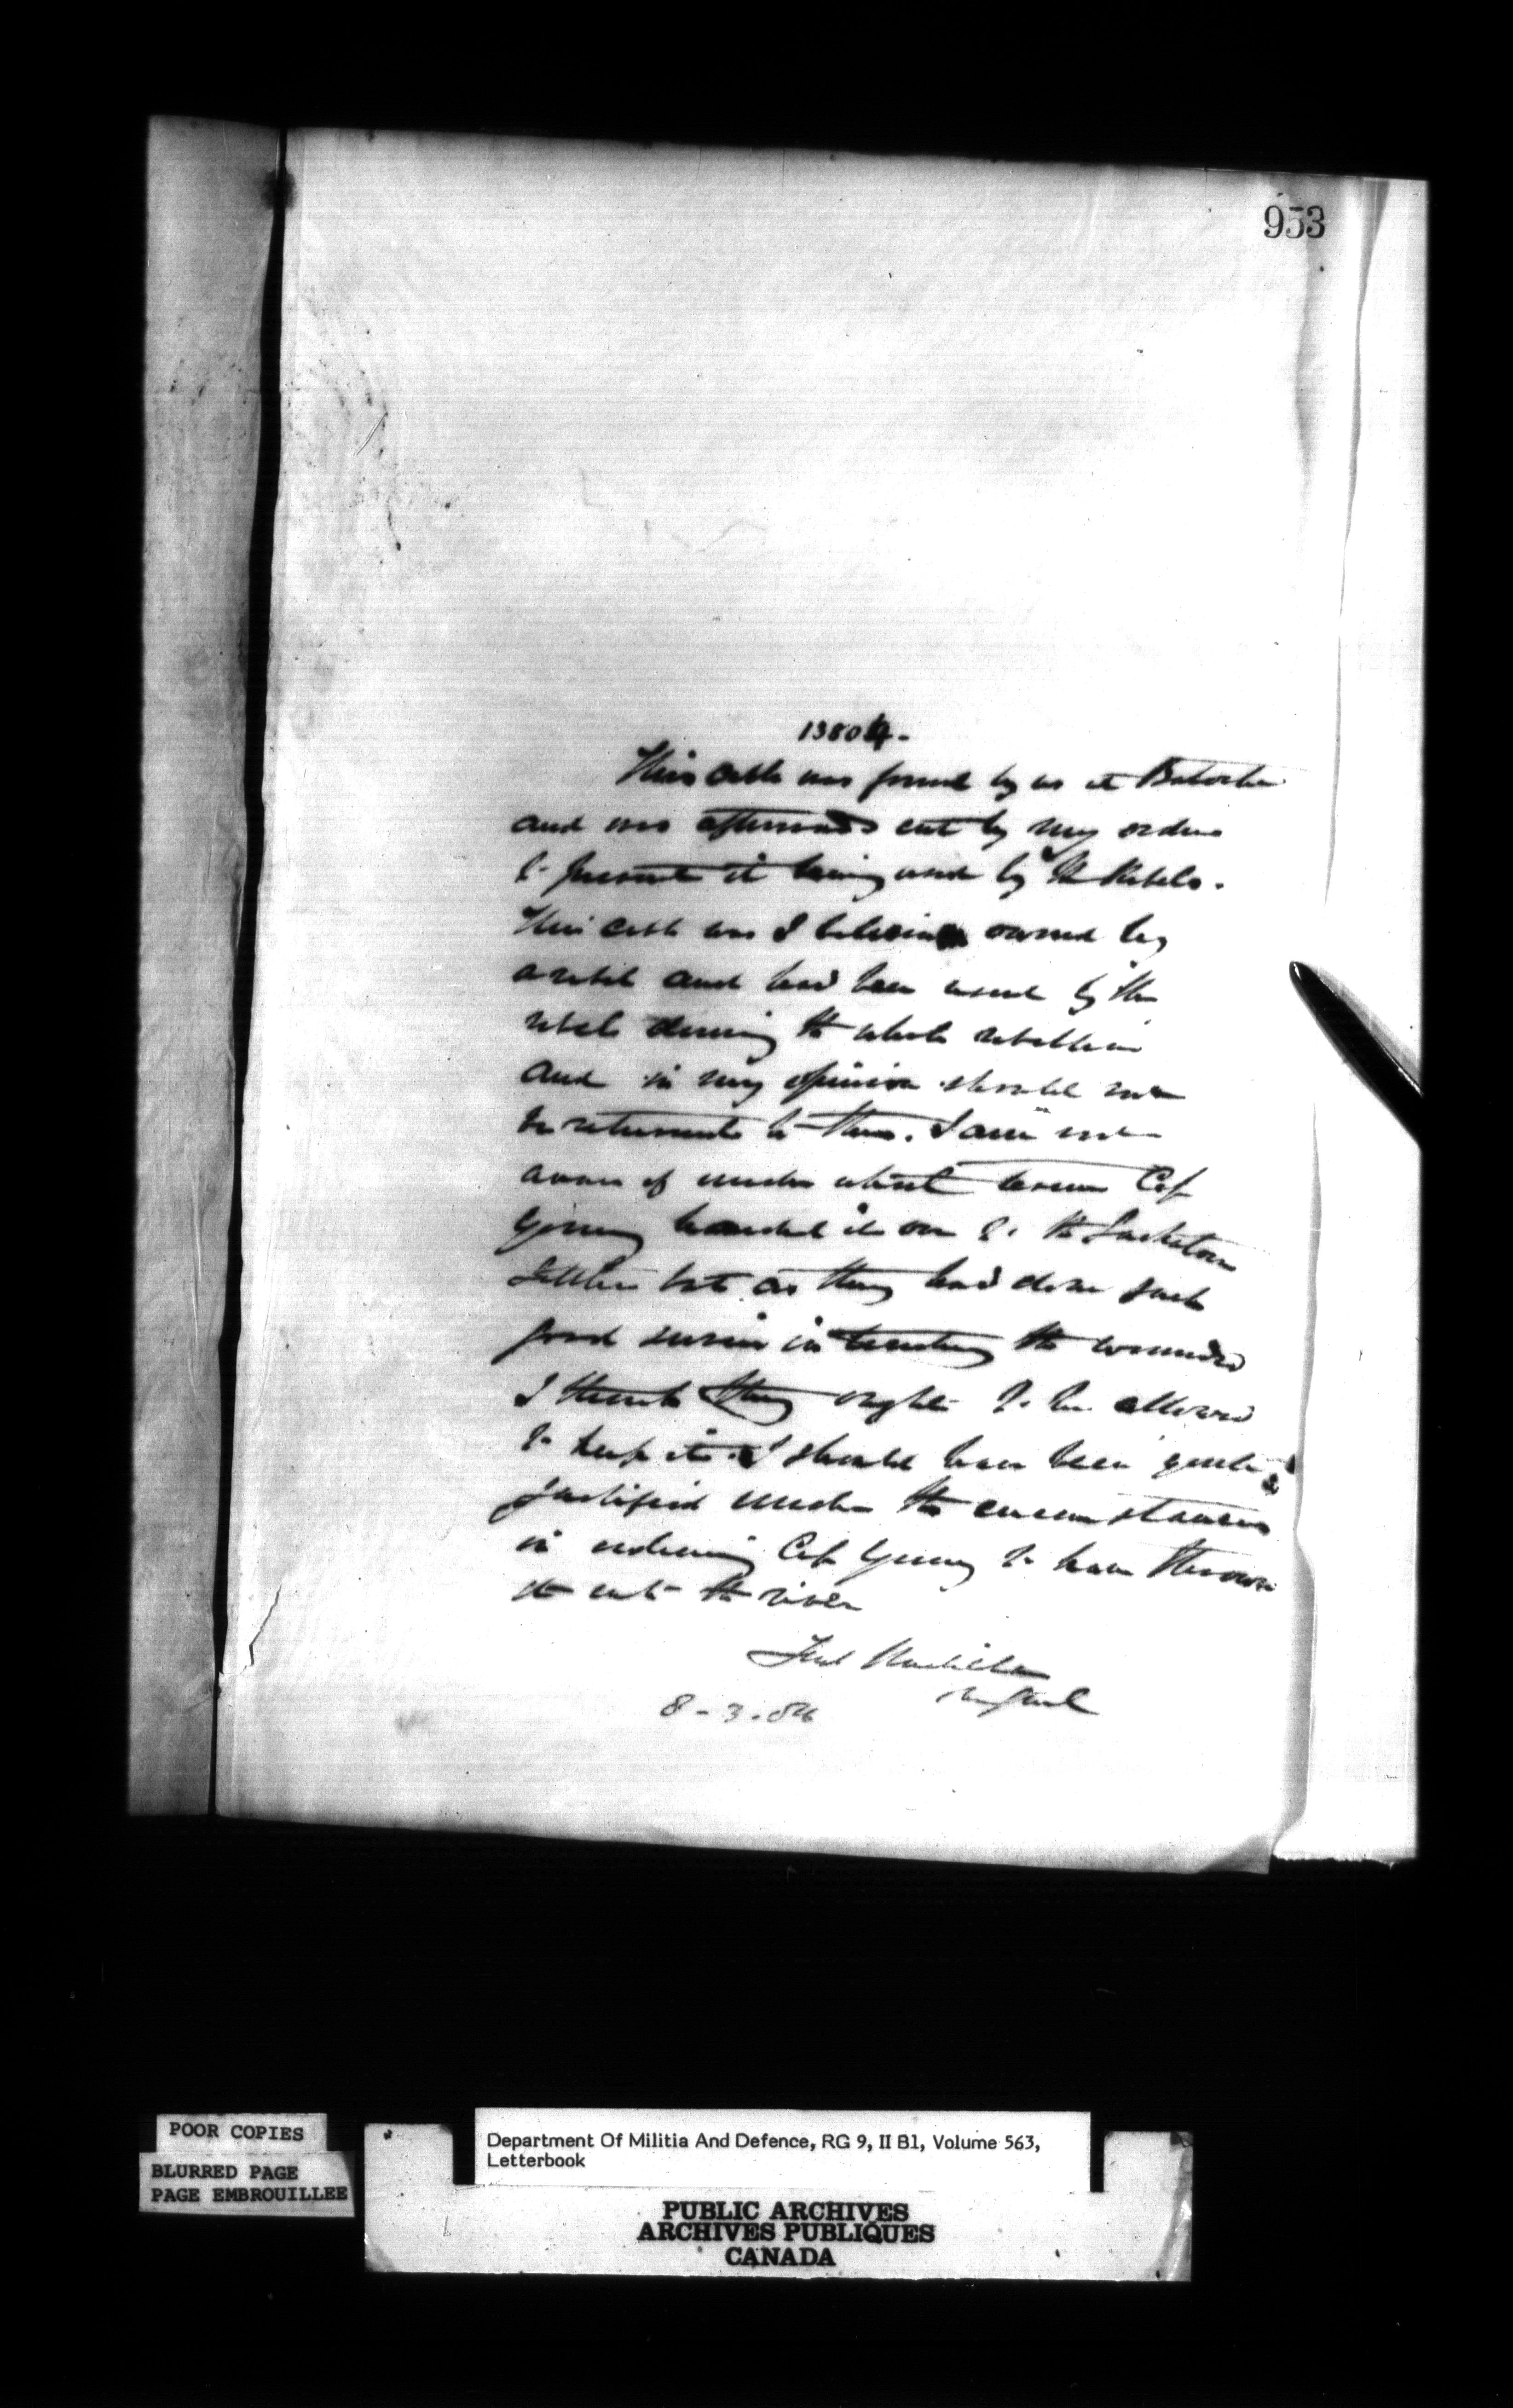 953
13804-
This cable was found by us at Batoche
and was afterwards cut by my orders
to prevent it being used by the Rebels.
This cable was I believe owned by
a rebel and had been used by the
rebels during the whole rebellion
and in my opinion should not
be returned to them. I am not
aware of under what terms Cap
Young handed it over to the Saskatoon
Settlers but as they had done such
good service in treating the wounded
I think they ought to be allowed
to keep it. I should have been quite
justified under the circumstances
in ordering Cap Young to have thrown
it into the river
Fred Middleton
8-3.86
POOR COPIES
BLURRED PAGE
PAGE EMBROUILLEE
Department Of Militia And Defence, RG 9, II B1, Volume 563,
Letterbook
PUBLIC ARCHIVES
ARCHIVES PUBLIQUES
CANADA